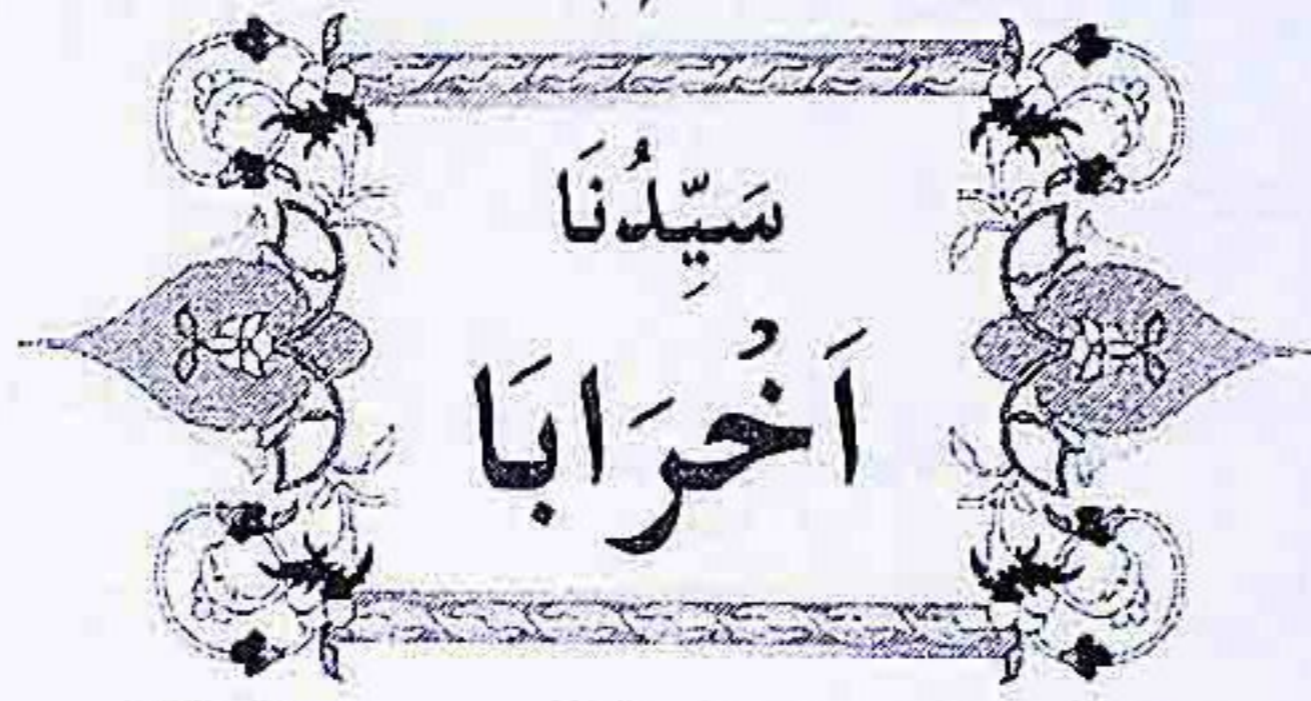 سَيِّدُنَا
اَخُرَابَا